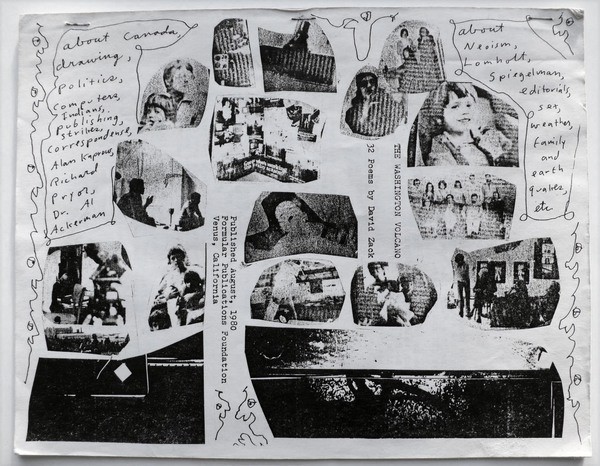 about Canada,
drawing,
Politics,
Computers,
Indians,
Publishing,
strikes,
correspondense,
Alan Kaprow,
Richard
Pryor,
Dr. Al
Ackerman
THE WASHINGTON VOLCANO
32 Poems by David Zack
Published August, 1980
Formular Publications Foundation
Venus, California
about
Neoism,
Lomholt,
Spiegelman,
editorials,
sax,
weather,
family
and
earth
quakes,
etc